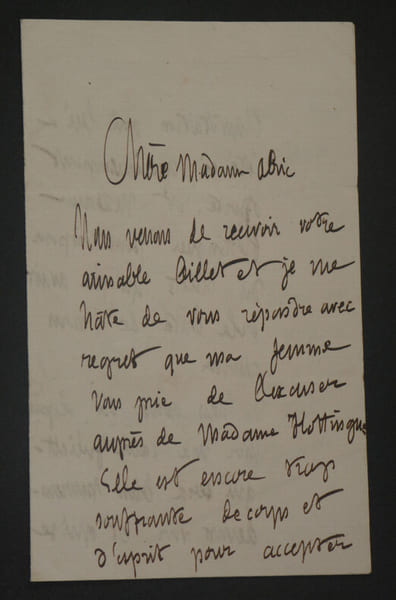 Chère Madame Abric
Nous venons de recevoir votre
aimable billet et je me
hâte de vous répondre avec
regret que ma femme
vous prie de l'excuser
auprès de Madame Hottingue
Elle est encore trop
souffrante de corps et
d'esprit pour accepter